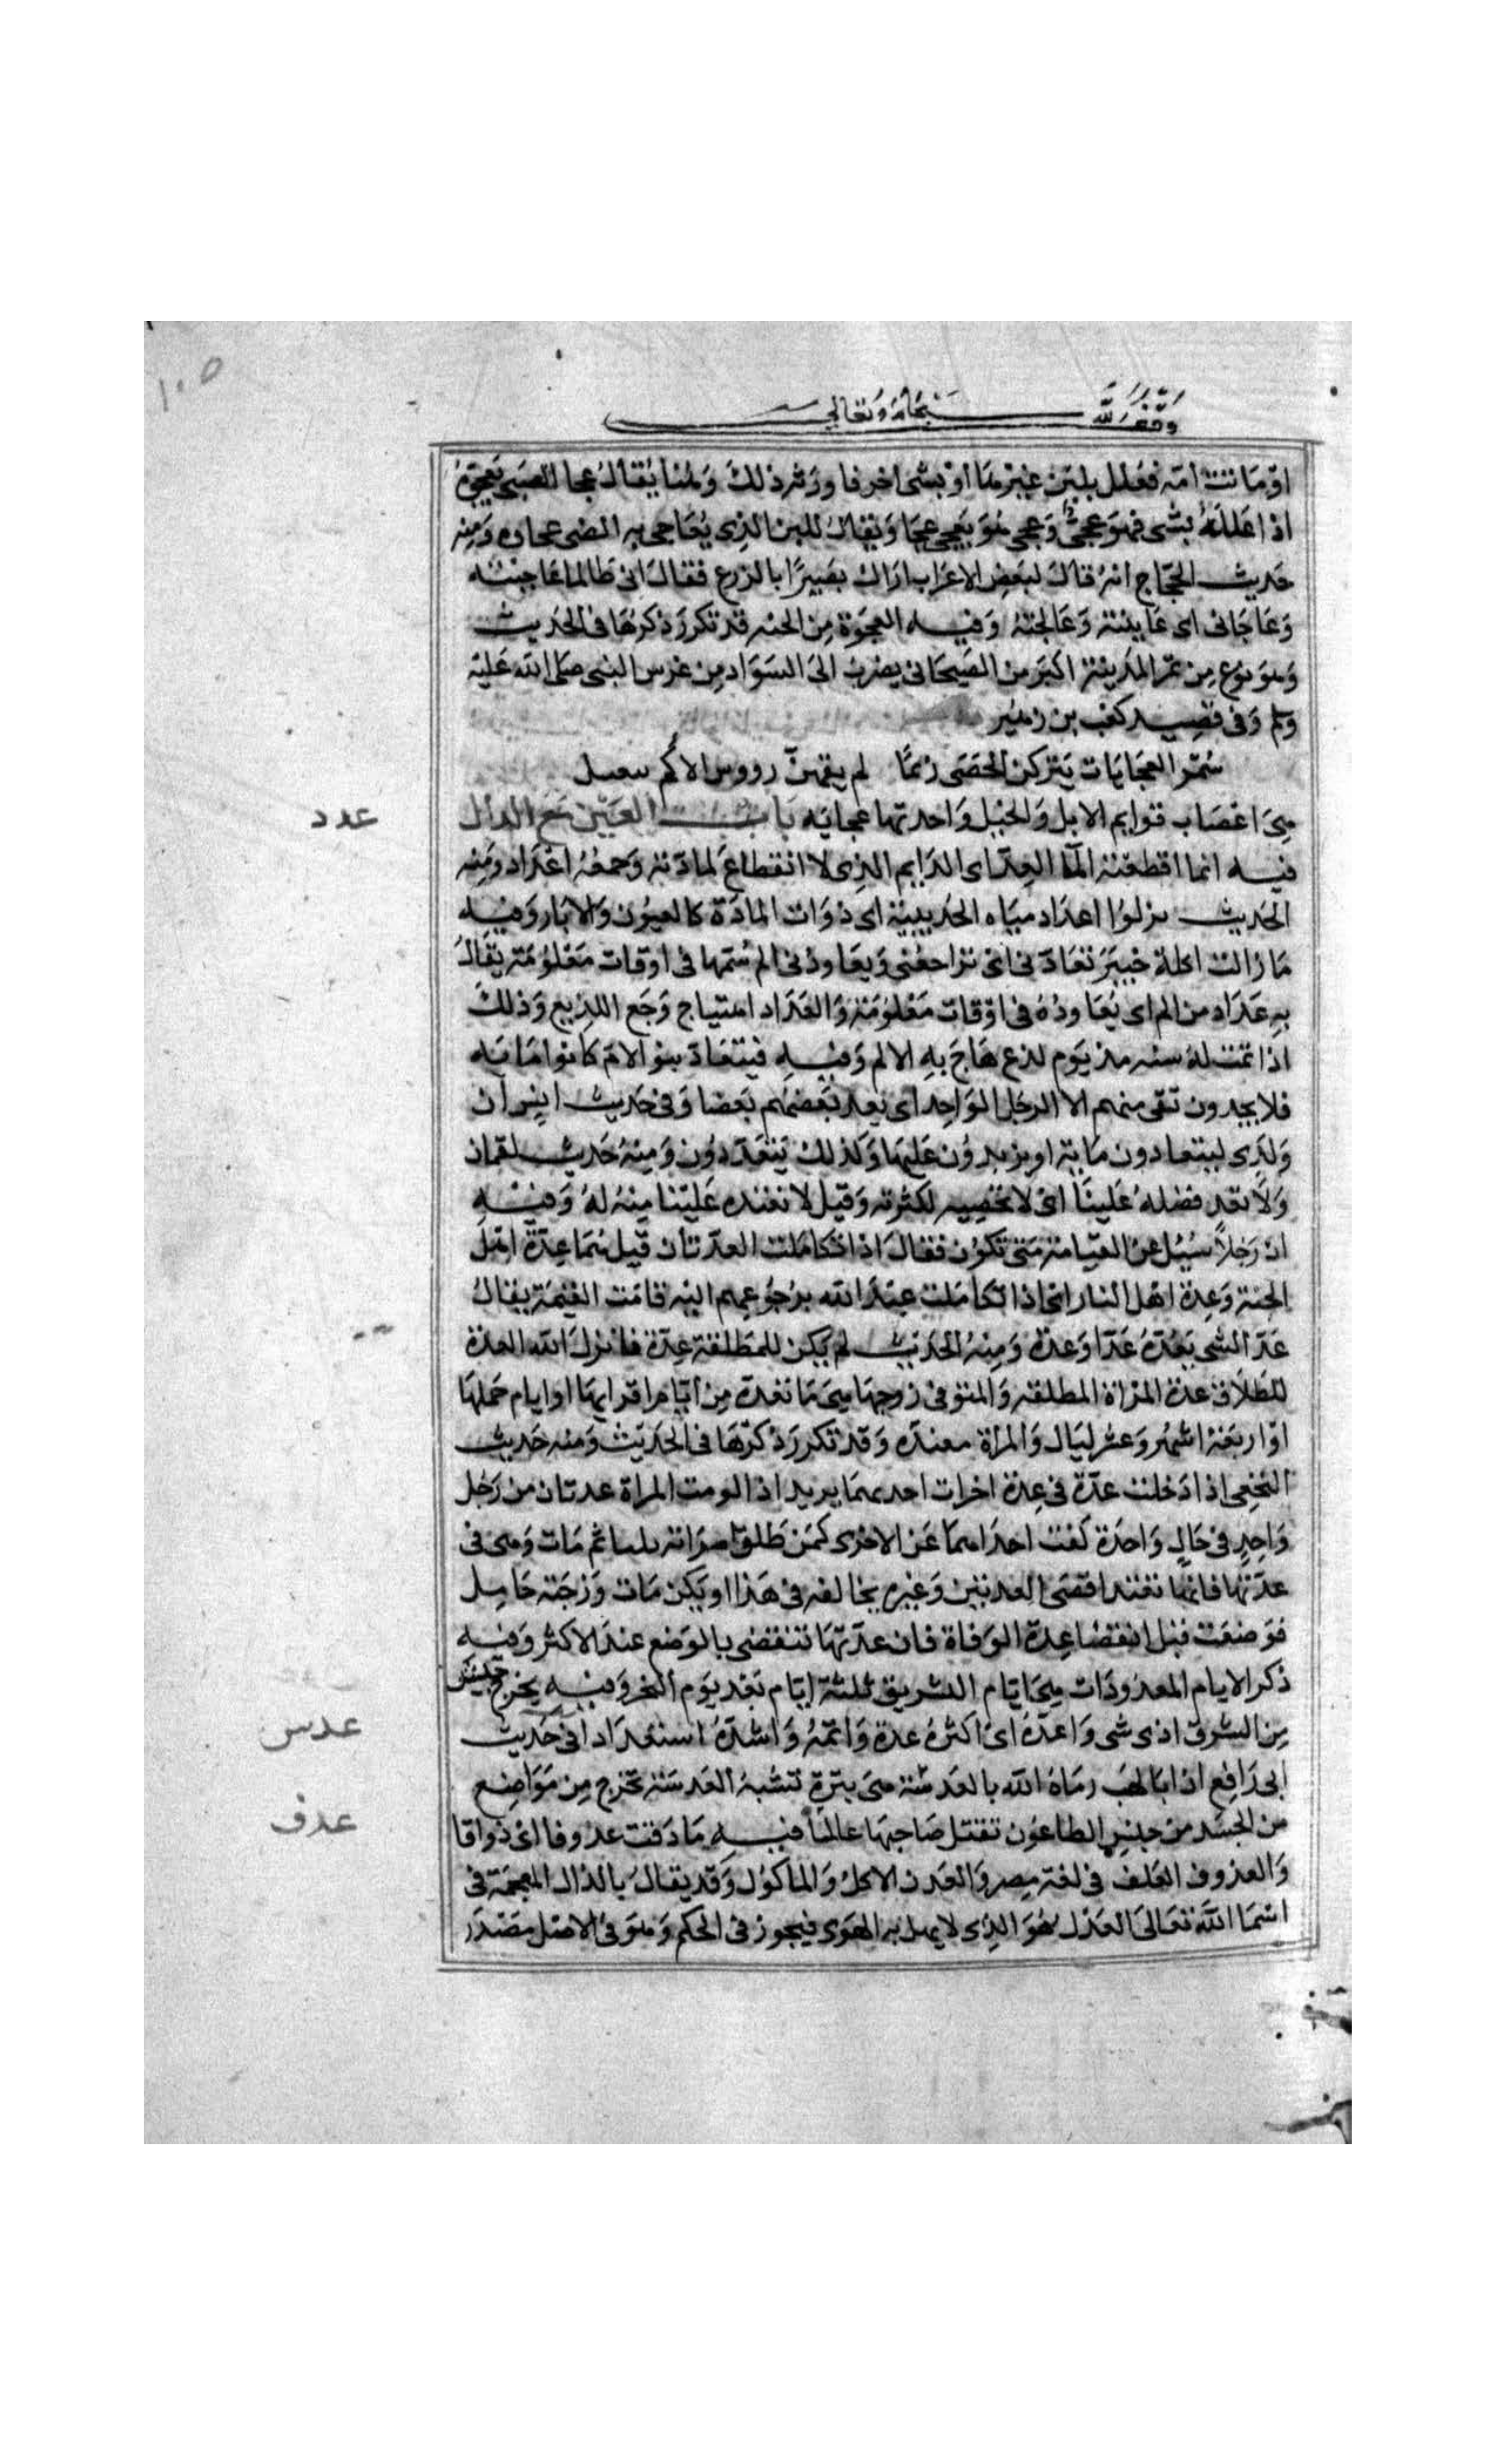 ١٠٥
وقف لله سبحانه وتعالى
او مَاتت امّه فعُلل بلبَن غيْرهَا اوْ بشى اخر فاورثه ذلكَ وَهُنا يُقالُ عجا الصَبى يَعجوهُ
اذا عَللَهُ بشى فهوَ عَجىٌّ وَعجى هُوَ يَعجى عجًا وَيقالُ للبن الذِى يُعَاجى به الصَبى عجاوه وَمنِه
حَديث الحَجّاج انهُ قالَ لبَعضِ الاعرَاب ارَاك بصَيرًا بالزرع فقالَ انى طَالما عَاجيته
وَعَاجَانى اى عَاينته وَعَالجَتهُ وَفيه العجوَة مِن الجنه قد تكررَ ذكرُهَا فى الحَدِيث
وَهوَ نوُع مِن تمر المدَينة اكبَر من الصَيحَانى يضربُ الىَ السَوَاد مِن غرس النبى صلى الله عَليهَ
وسلم وَفى قصِيد كعب بن زهَيُر
سُمر العجَايَات يَتركن الحصَى زيمًا لم يقهنّ رووس الاكُم سعيل
هِىَ اعصَاب قوايم الابل وَالخيل وَاحدتها عجايه بَابُ العَيْن مَعَ الدال
عدد
فيه انما اقطعته المآ العِدّ اى الدَايم الذِى لا انقطاعَ لمادّته وَجمعُهُ اعدَاد وَمنه
الحَديث نزلوُا اعدَاد ميَاه الحدَيبية اى ذوَات المادَة كالعيوُن وَالابَار وَفيه
مَا زالت اكلة خيبَرَ تعَادّنى اى تراجعُنى وَيعَاودُنى الم سُمّها فى اوقات مَعْلوُمَة يقالُ
بهِ عدَاد من الم اى يُعَاودُهُ فى اوْقات مَعْلوُمَة وَالعدَاد اهتياج وَجَع اللدِيع وَذلكَ
اذا تمّت لهُ سنه مذ يَوم لدغ هَاجَ بهِ الالم وَفيهِ فيتعَادّ بنو الامّ كانوا مَايَه
فلا يجدون بقى منهم الا الرجَل الوَاحِد اى يعد بَعضهُم بَعضا وَفى حَديث انِس ان
وَلدِى ليتعادون مَاية او يزيدوُن عَليهَا وَكذلك يَتعَدّدوُن وَمِنهُ حَديث لقمان
وَلا نَعد فضلهُ عَلينَا اىْ لا نحُصِيه لكثرته وَقيل لا نعتده عَليْنا منِهُ لهُ وَفيْهِ
انّ رَجلاً سُيل عن القيَامة مَتى تكوُن فقالَ اذا تكاملت العدّتان قيل هُمَا عِدّة اهل
الجنة وَعِدة اهل النار اى اذا تكاملت عِندَ الله برُجُوعِهم اليْه قامَت القيمَة يقالُ
عَدّ الشى يَعُدّهُ عَدّا وَعدة وَمِنهُ الحَدَيث لم يكن للمطَلقة عِدّة فانزلَ الله العدة
للطلَاق عدة المرَاة المطلقه وَالمتوفى زوجهَا هِىَ مَا تعدهّ مِن ايّام اقرايهَا او ايام حَملهَا
اوْ اربَعَة اشهُر وَعشر ليَال وَالمرأة معتده وَقد تكررَ ذكرُهَا فى الحدَيث وَمنه حَديث
النخِعى اذا دَخلت عدّة فى عِدة اجزات احدىهمَا يريد اذا لزمت المراة عدتان من رَجُل
وَاحِدٍ فى حَالٍ وَاحدَة كَفت احدَاهمَا عَن الاخرى كمَن طَلق امرَاته ثلاثا ثم مَات وَهى فى
عدتهَا فانهَا تعتد اقصَى العدتين وَغيره يخالفه فى هَذا او يكن مَات وَزجَته حَامِل
فوَضعَت قبل انقضَا عِدة الوَفاة فان عدتهَا تنقضى بالوَضع عندَ الاكثر وَفيه
ذكر الايام المعدودَات هِىَ ايّام التشريق ثلثة ايّام بَعد يَوم النحر وَفيه يخرج جَيش
مِن الشرق اذى شى وَاعدّهُ اىْ اكثرهُ عدة وَاتمّهُ وَاشدّهُ استعدَاد
عدس
فى حَديث
ابى رَافِع اذ ابَا لهَب رمَاهُ الله بالعدَسَة هىَ بثرة تشبهُ العَدسَة تخرج مِن مَوَاضِع
من الجسَد من جنس الطاعوُن تقتل صَاحبهَا غالبًا
عدف
فيه مَا ذقت عدوفا اى ذواقا
وَالعدوف العَلف فى لغة مصر وَالعَدف الاكل وَالمأكوُل وَقد يقالُ بالذال المعجمَة فى
اسمَا اللهَ تعَالىَ العَدْل هُوَ الذِى لا يميل به الهَوَى فيجوز فى الحكم وَهوَ فى الاصْل مصْدَر